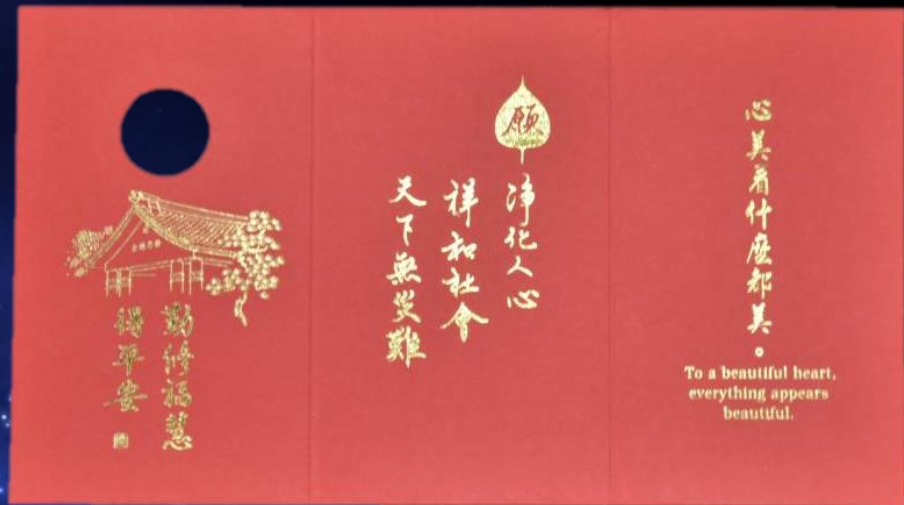 勤修福慧
得平安
願
淨化人心
祥和社會
天下無災難
心美看什麼都美。
To a beautiful heart,
everything appears
beautiful.